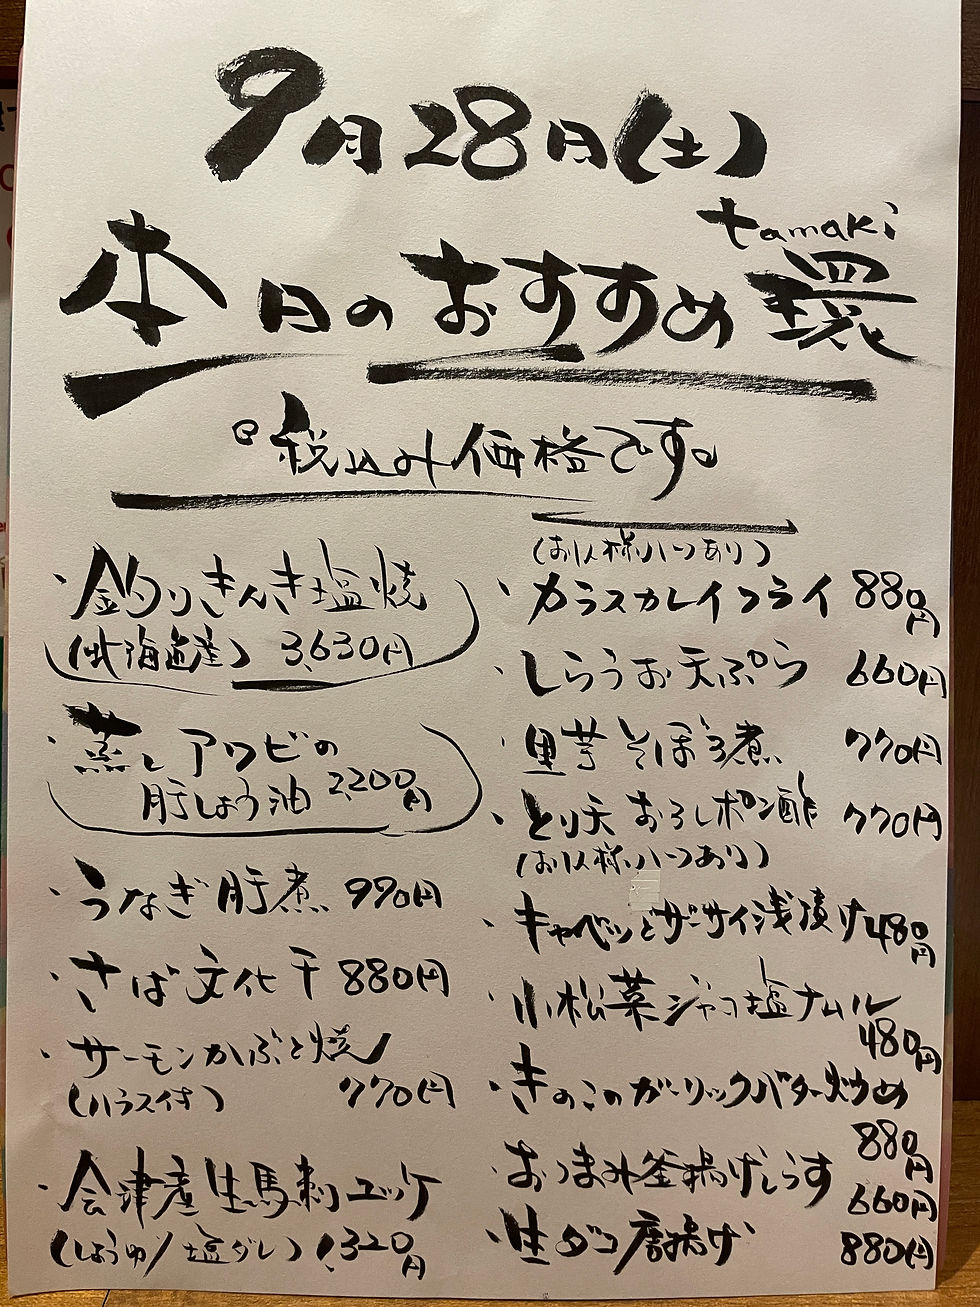 9月28日(土)
tamaki
本日のおすすめ 環
税込み価格です。
・釣りきんき塩焼
(北海道産) 3,630円
・蒸しアワビの
肝しょう油 2,200円
・うなぎ肝煮 990円
・さば文化干 880円
・サーモンかぶと焼
(ハラス付) 770円
・会津産生馬刺ユッケ
(しょうゆ/塩ダレ) 1,320円
(お1人様ハーフあり)
・カラスカレイフライ 880円
・しらうお天ぷら 660円
・里芋そぼろ煮 770円
・とり天おろしポン酢 770円
(お1人様ハーフあり)
・キャベツとザーサイ浅漬け 480円
・小松菜ジャコ塩ナムル
480円
・きのこのガーリックバター炒め
880円
・おつまみ釜揚げしらす
660円
・生ダコ唐揚げ 880円